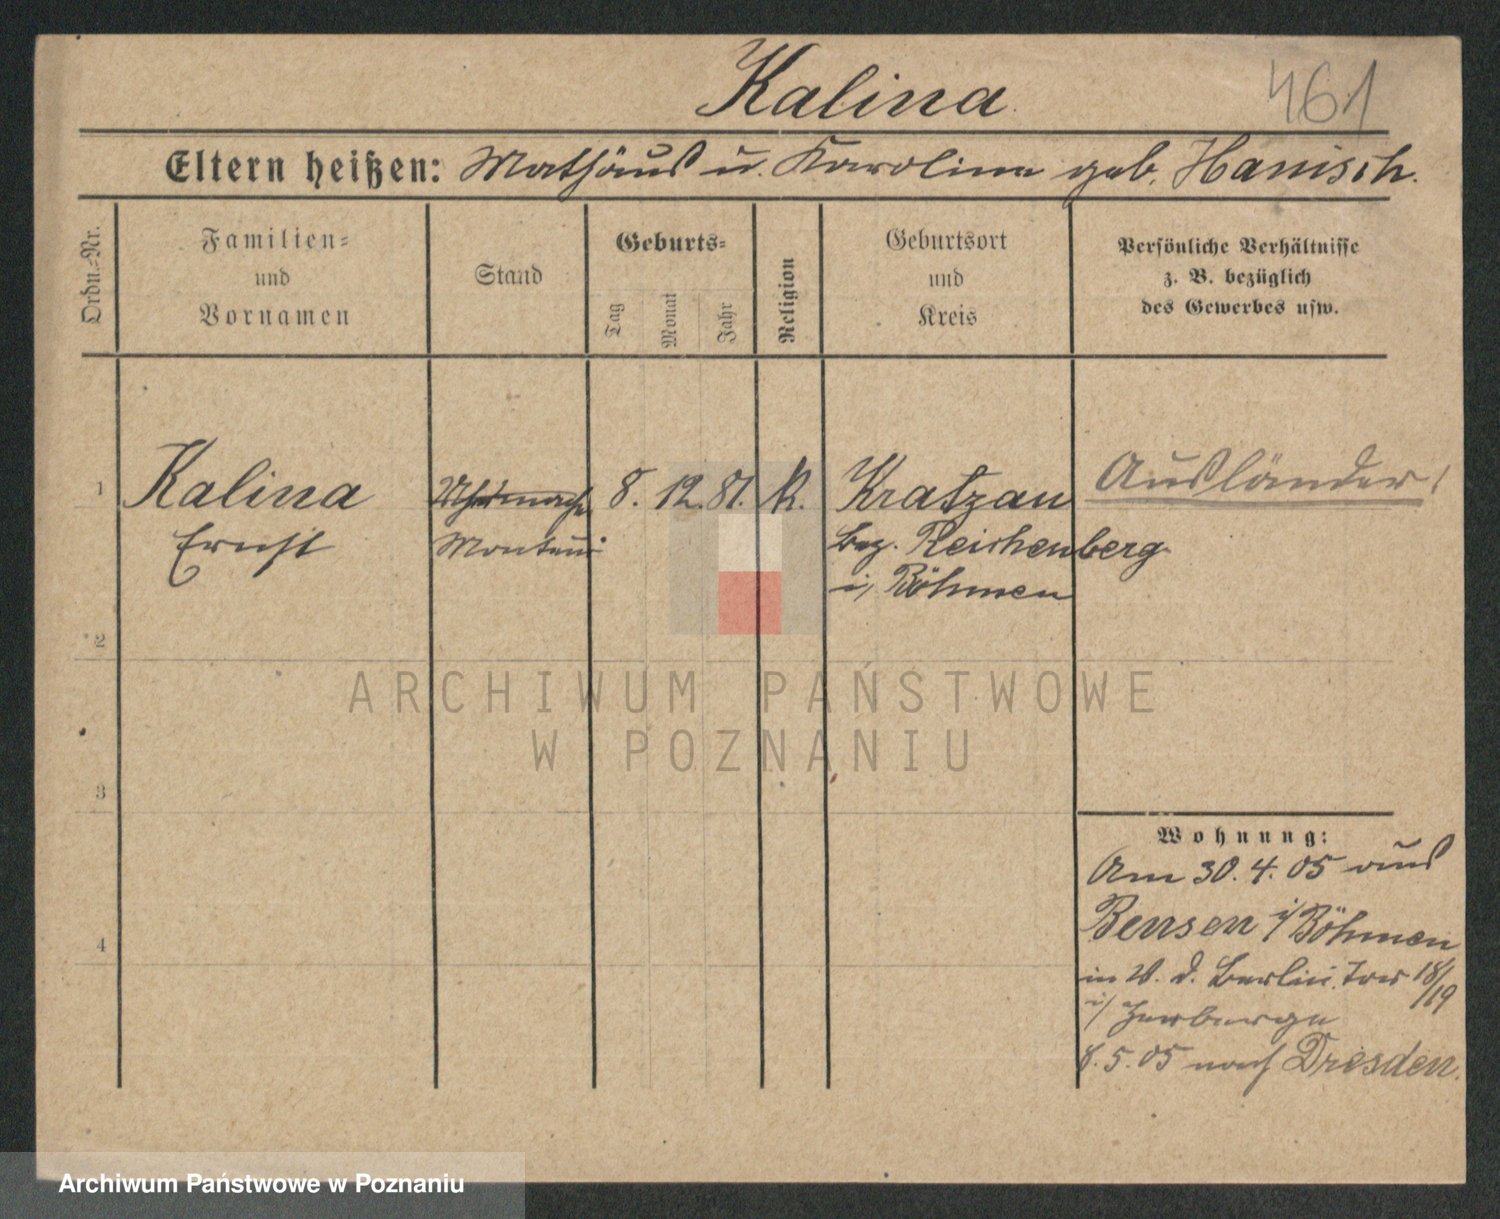 Kalina
461
Eltern heißen: Mathäus u. Karolina geb. Hanisch.
Ordn.-Nr.
Familien-
und
Vornamen
Stand
Geburts-
Tag
Monat
Jahr
Religion
Geburtsort
und
Kreis
Persönliche Verhältnisse
z. B. bezüglich
des Gewerbes usw.
1 Kalina 8. 12. 81. K. Kratzau Ausländer!
Ernst Monteur Bez. Reichenberg
i/ Böhmen
2
3
4
Wohnung:
Am 30. 4. 05 aus
Bensen i/ Böhmen
in W. d. Berlin. Tor 18/19
i/ Herberge
8. 5. 05 nach Dresden.
ARCHIWUM PAŃSTWOWE
W POZNANIU
Archiwum Państwowe w Poznaniu